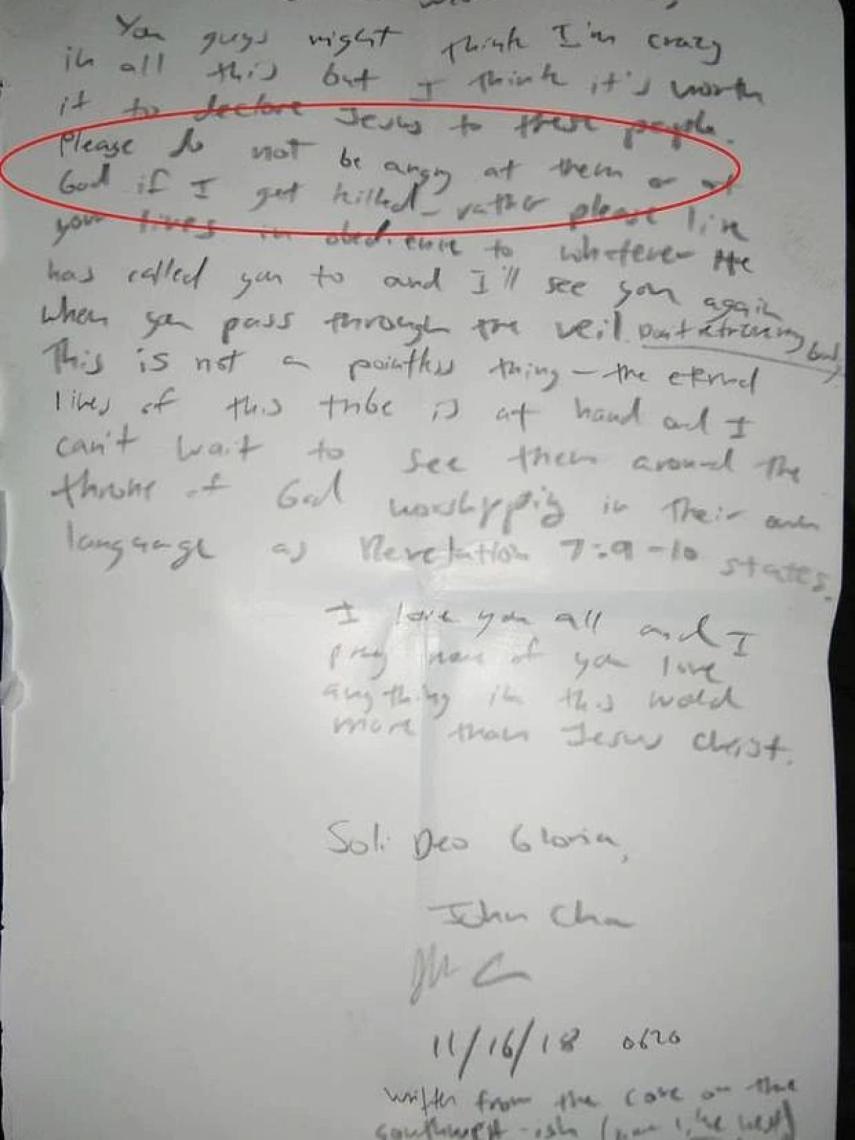 You guys might think I'm crazy
in all this but I think it's worth
it to declare Jesus to these people.
Please do not be angry at them or at
God if I get killed - rather please live
your lives in obedience to whatever He
has called you to and I'll see you again
when you pass through the veil. Don't retrieve my body
This is not a pointless thing - the eternal
lives of this tribe is at hand and I
can't wait to see them around the
throne of God worshipping in their own
language as Revelation 7:9-10 states.
I love you all and I
pray none of you love
anything in this world
more than Jesus Christ.
Soli Deo Gloria,
John Chau
JC
11/16/18 0620
written from the cove on the
southwest-ish